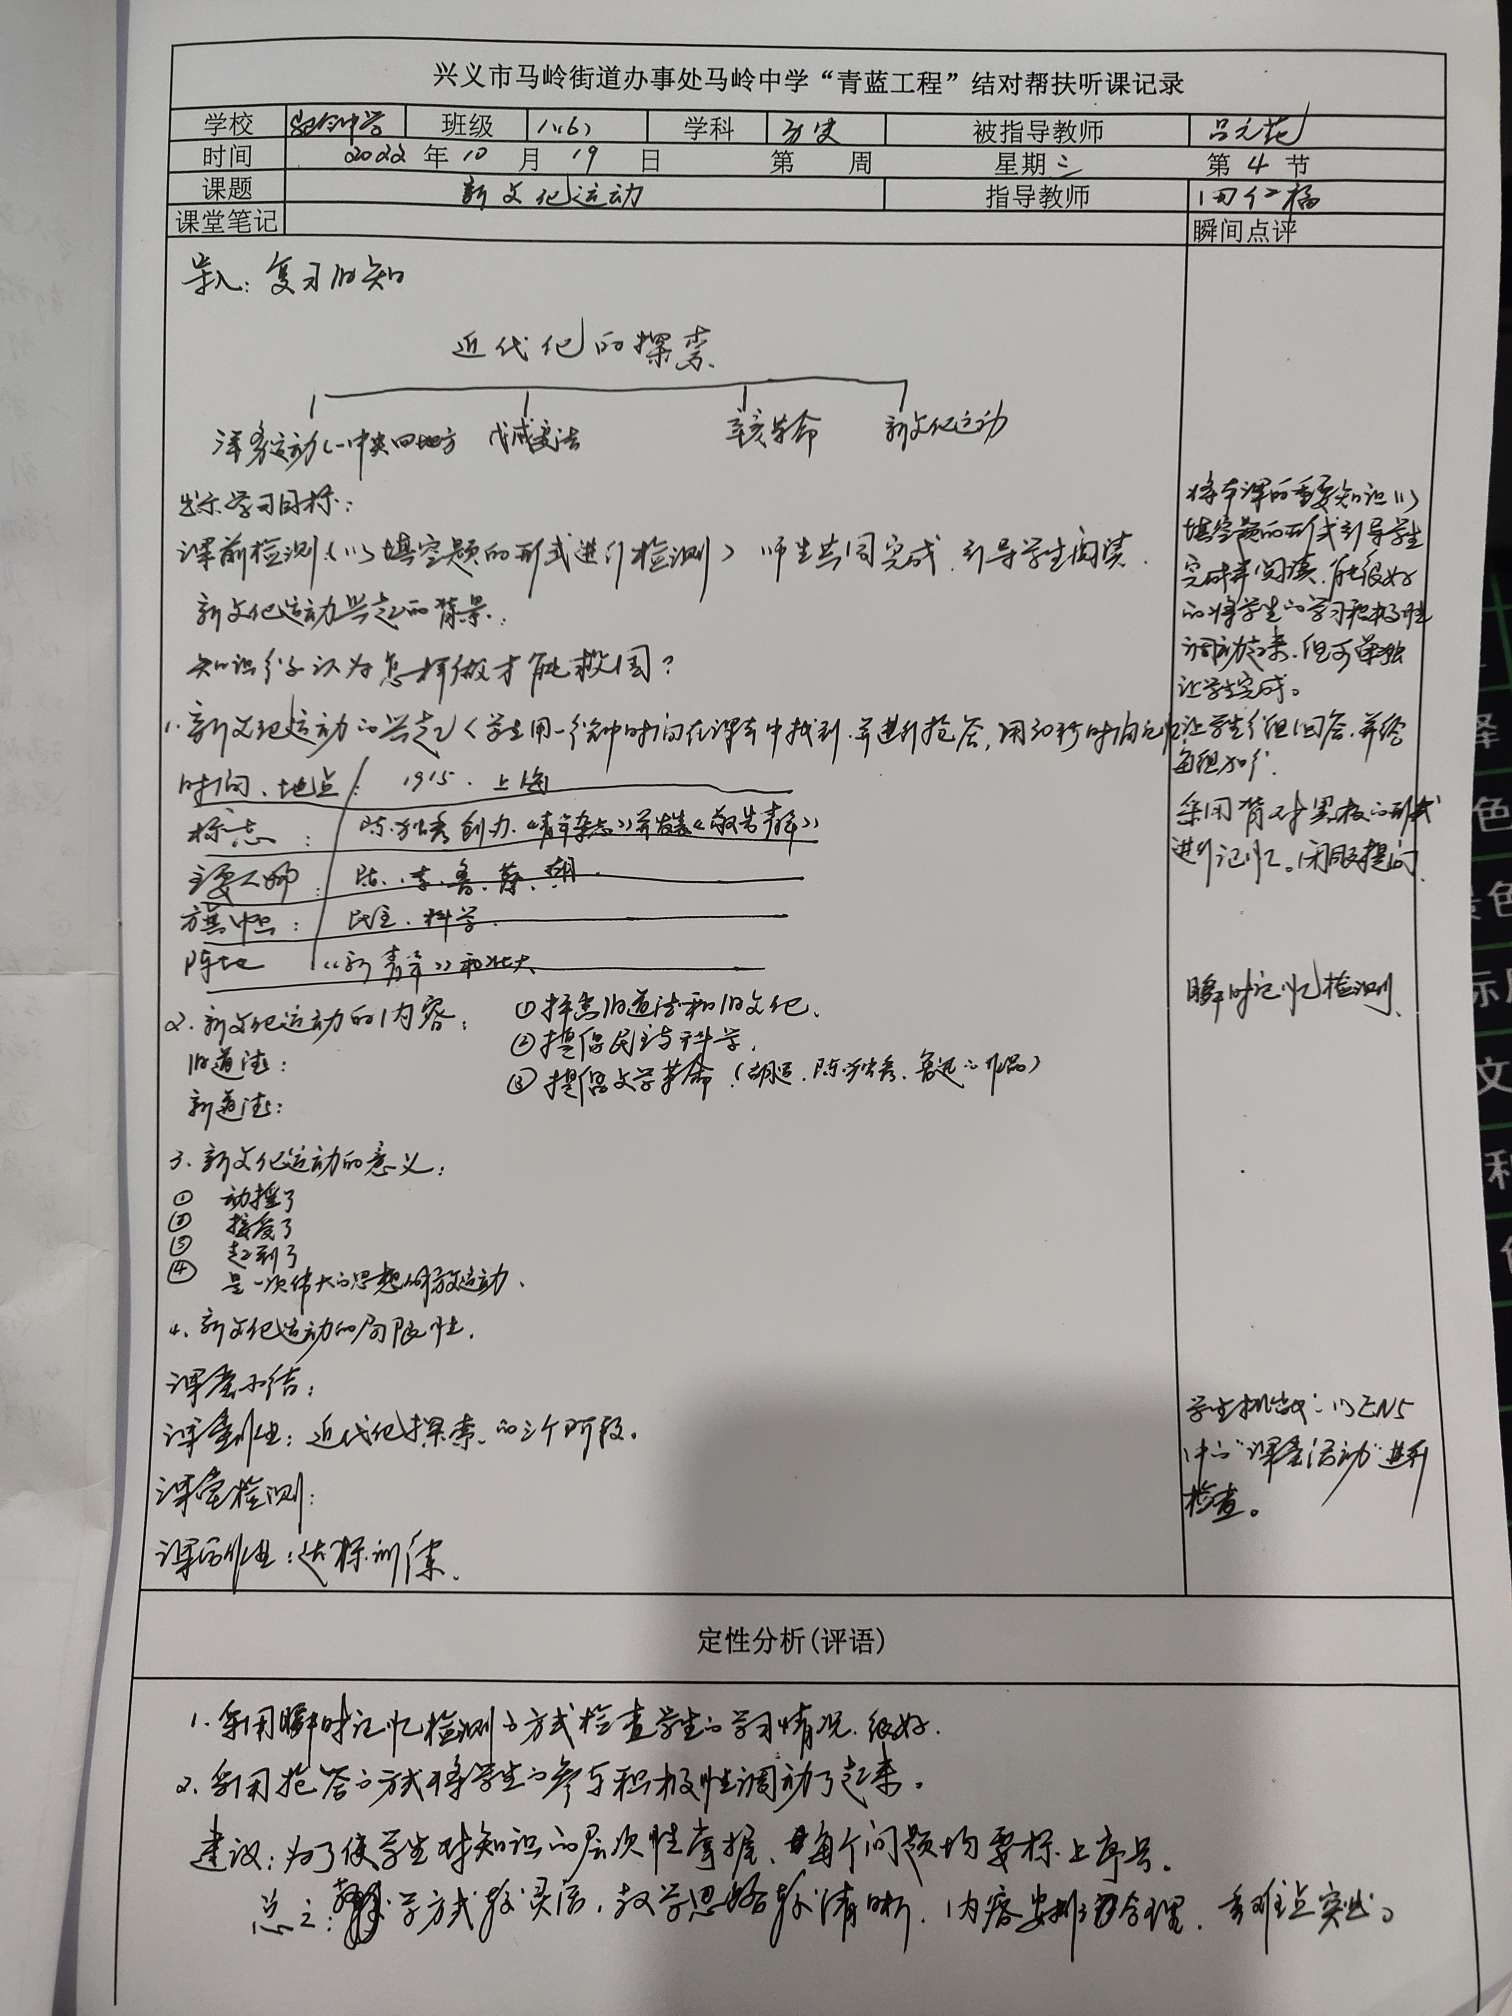 兴义市马岭街道办事处马岭中学“青蓝工程”结对帮扶听课记录
学校 马岭中学 班级 八(6) 学科 历史 被指导教师 吕元花
时间 2022 年 10 月 19 日 第 周 星期 三 第 4 节
课题 新文化运动 指导教师
课堂笔记 瞬间点评
导入: 复习旧知
近代化的探索
洋务运动(中央和地方 戊戌变法 辛亥革命 新文化运动
出示学习目标:
课前检测(以填空题的形式进行检测) 师生共同完成.引导学生阅读.
新文化运动兴起的背景:
知识分子认为怎样做才能救国?
1.新文化运动的兴起(学生用一分钟时间在课本中找到.并进行抢答,用30秒时间记忆
时间、地点: 1915. 上海
标志: 陈独秀创办《青年杂志》并发表《敬告青年》
主要人物: 陈、李、鲁、蔡、胡.
旗帜: 民主、科学.
阵地 《新青年》和北大
2.新文化运动的内容: ①抨击旧道德和旧文化.
旧道德: ②提倡民主与科学.
新道德: ③提倡文学革命(胡适、陈独秀、鲁迅的作品)
3.新文化运动的意义:
① 动摇了
② 接受了
③ 起到了
④ 是一次伟大的思想解放运动.
4.新文化运动的局限性.
课堂小结:
课堂作业: 近代化探索的三个阶段.
课堂检测:
课后作业: 达标训练.
将本课的重要知识以
填空题的形式引导学生
完成并阅读.能很好
的将学生的学习积极性
调动起来.但可单独
让学生完成。
让学生分组回答.并给
每组加分.
采用背对黑板的形式
进行记忆。闭眼提问.
瞬时记忆检测
学生挑战: 以EN5
中的“课堂活动”进行
检查。
定性分析(评语)
1.采用瞬时记忆检测的方式检查学生的学习情况.很好.
2.采用抢答的方式将学生的参与积极性调动了起来。
建议:为了使学生对知识的层次性掌握、每个问题均要标上序号。
总之:教学方式较灵活,教学思路较清晰.内容安排较合理.重难点突出。